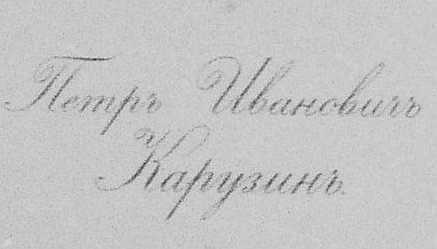 Петръ Ивановичъ
Карузинъ.